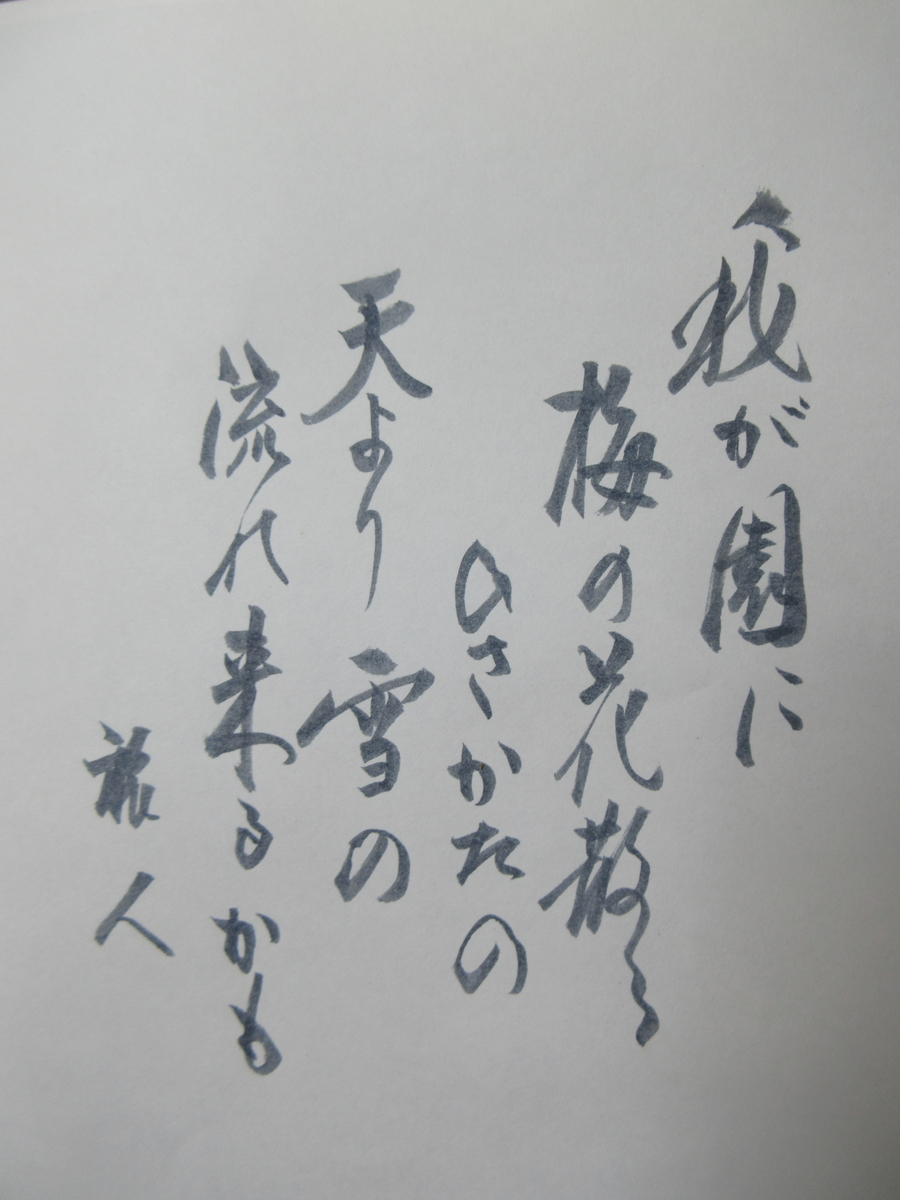 我が園に
梅の花散る
ひさかたの
天より雪の
流れ来るかも
旅人